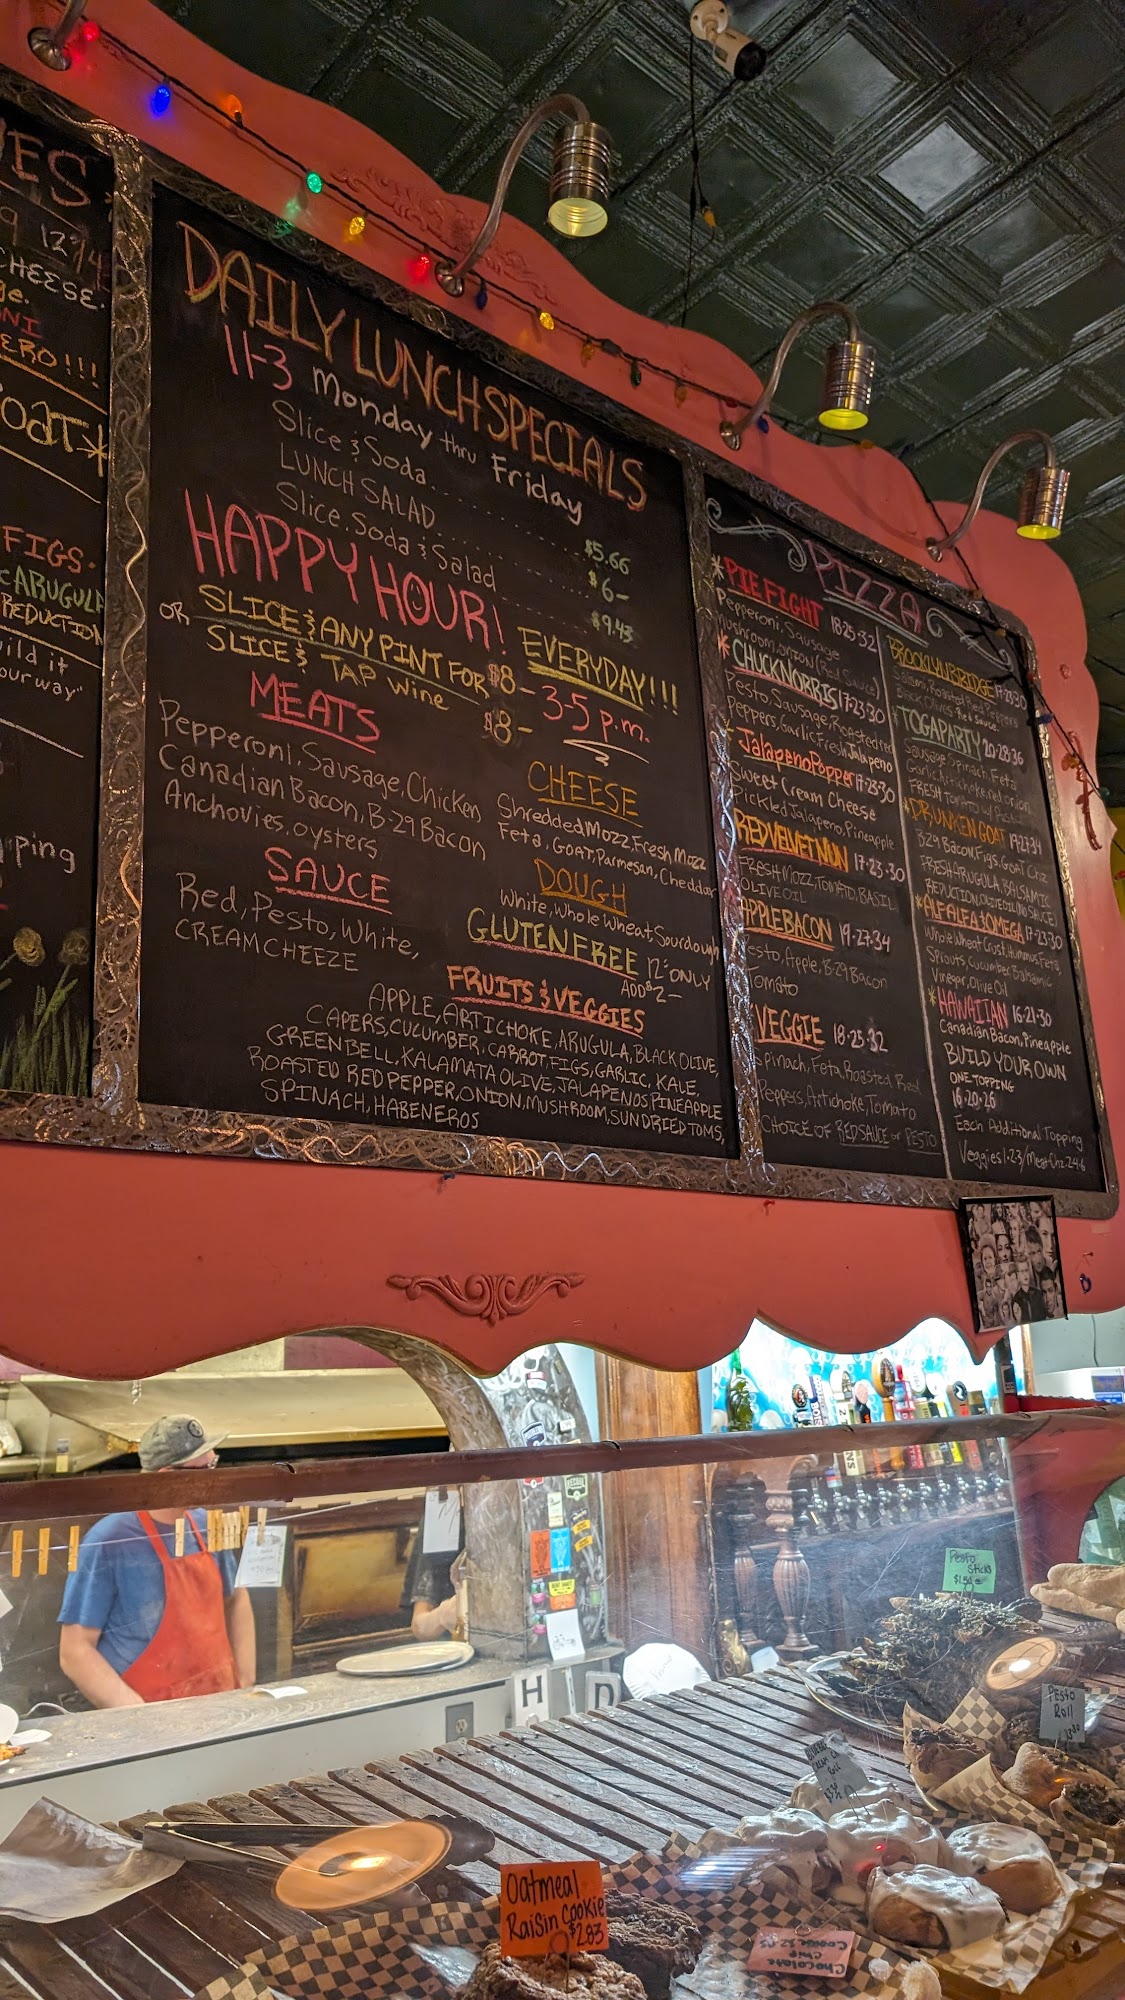 9 12"/4
CHEESE.
ge.
NI
ERO!!!
oat*
FIGS.
ARUGULA
REDUCTION
uild it
our way"
ping
DAILY LUNCH SPECIALS
11-3 Monday thru Friday
Slice & Soda........ $5.66
LUNCH SALAD........ $6-
Slice, Soda & Salad........ $9.43
HAPPY HOUR!
EVERYDAY!!!
3-5 p.m.
SLICE & ANY PINT FOR $8-
OR SLICE & TAP wine $8-
MEATS
Pepperoni, Sausage, Chicken
Canadian Bacon, B-29 Bacon
Anchovies, oysters
SAUCE
Red, Pesto, White,
CREAM CHEEZE
CHEESE
Shredded Mozz, Fresh Mozz
Feta, GOAT, Parmesan, Cheddar
DOUGH
White, Whole Wheat, Sourdough
GLUTEN FREE 12" ONLY
ADD $2-
FRUITS & VEGGIES
APPLE, ARTICHOKE, ARUGULA, BLACK OLIVE,
CAPERS, CUCUMBER, CARROT, FIGS, GARLIC, KALE,
GREEN BELL, KALAMATA OLIVE, JALAPENOS, PINEAPPLE
ROASTED RED PEPPER, ONION, MUSHROOM, SUNDRIED TOMS,
SPINACH, HABENEROS
PIZZA
*PIE FIGHT 18-25-32
Pepperoni, Sausage
Mushroom, onion (Red Sauce)
*CHUCK NORRIS 17-23-30
Pesto, Sausage, Roasted red
Peppers, Garlic, Fresh Jalapeno
Jalapeno Popper 17-23-30
Sweet Cream Cheese
Pickled Jalapeno, Pineapple
RED VELVET NUN 17-23-30
FRESH MOZZ, TOMATO, BASIL
OLIVE OIL
APPLE BACON 19-27-34
Pesto, Apple, B-29 Bacon
Tomato
VEGGIE 18-25-32
Spinach, Feta, Roasted Red
Peppers, Artichoke, Tomato
CHOICE OF RED SAUCE or PESTO
BROOKLYN BRIDGE 17-23-30
Salami, Roasted Red Peppers
Black Olives Red Sauce.
*TOGA PARTY 20-28-36
Sausage, Spinach, Feta
Garlic, Artichoke, red onion,
FRESH Tomato w/ Pesto
*DRUNKEN GOAT 19-27-34
B-29 Bacon, Figs, Goat Chz
FRESH ARUGULA, BALSAMIC
REDUCTION, OLIVE OIL (NO SAUCE)
*ALFALFA & OMEGA 17-23-30
Whole Wheat Crust, Hummus, Feta,
Sprouts, Cucumber, Balsamic
Vinegar, Olive Oil
*HAWAIIAN 16-21-30
Canadian Bacon, Pineapple
BUILD YOUR OWN
ONE TOPPING
16-20-26
Each Additional Topping
Veggies 1-2-3/Meat Chz 2-4-6
Pesto
Sticks
Pesto
Roll
H
D
Oatmeal
Raisin Cookie
$2.83
Chocolate
Chip
Cookie